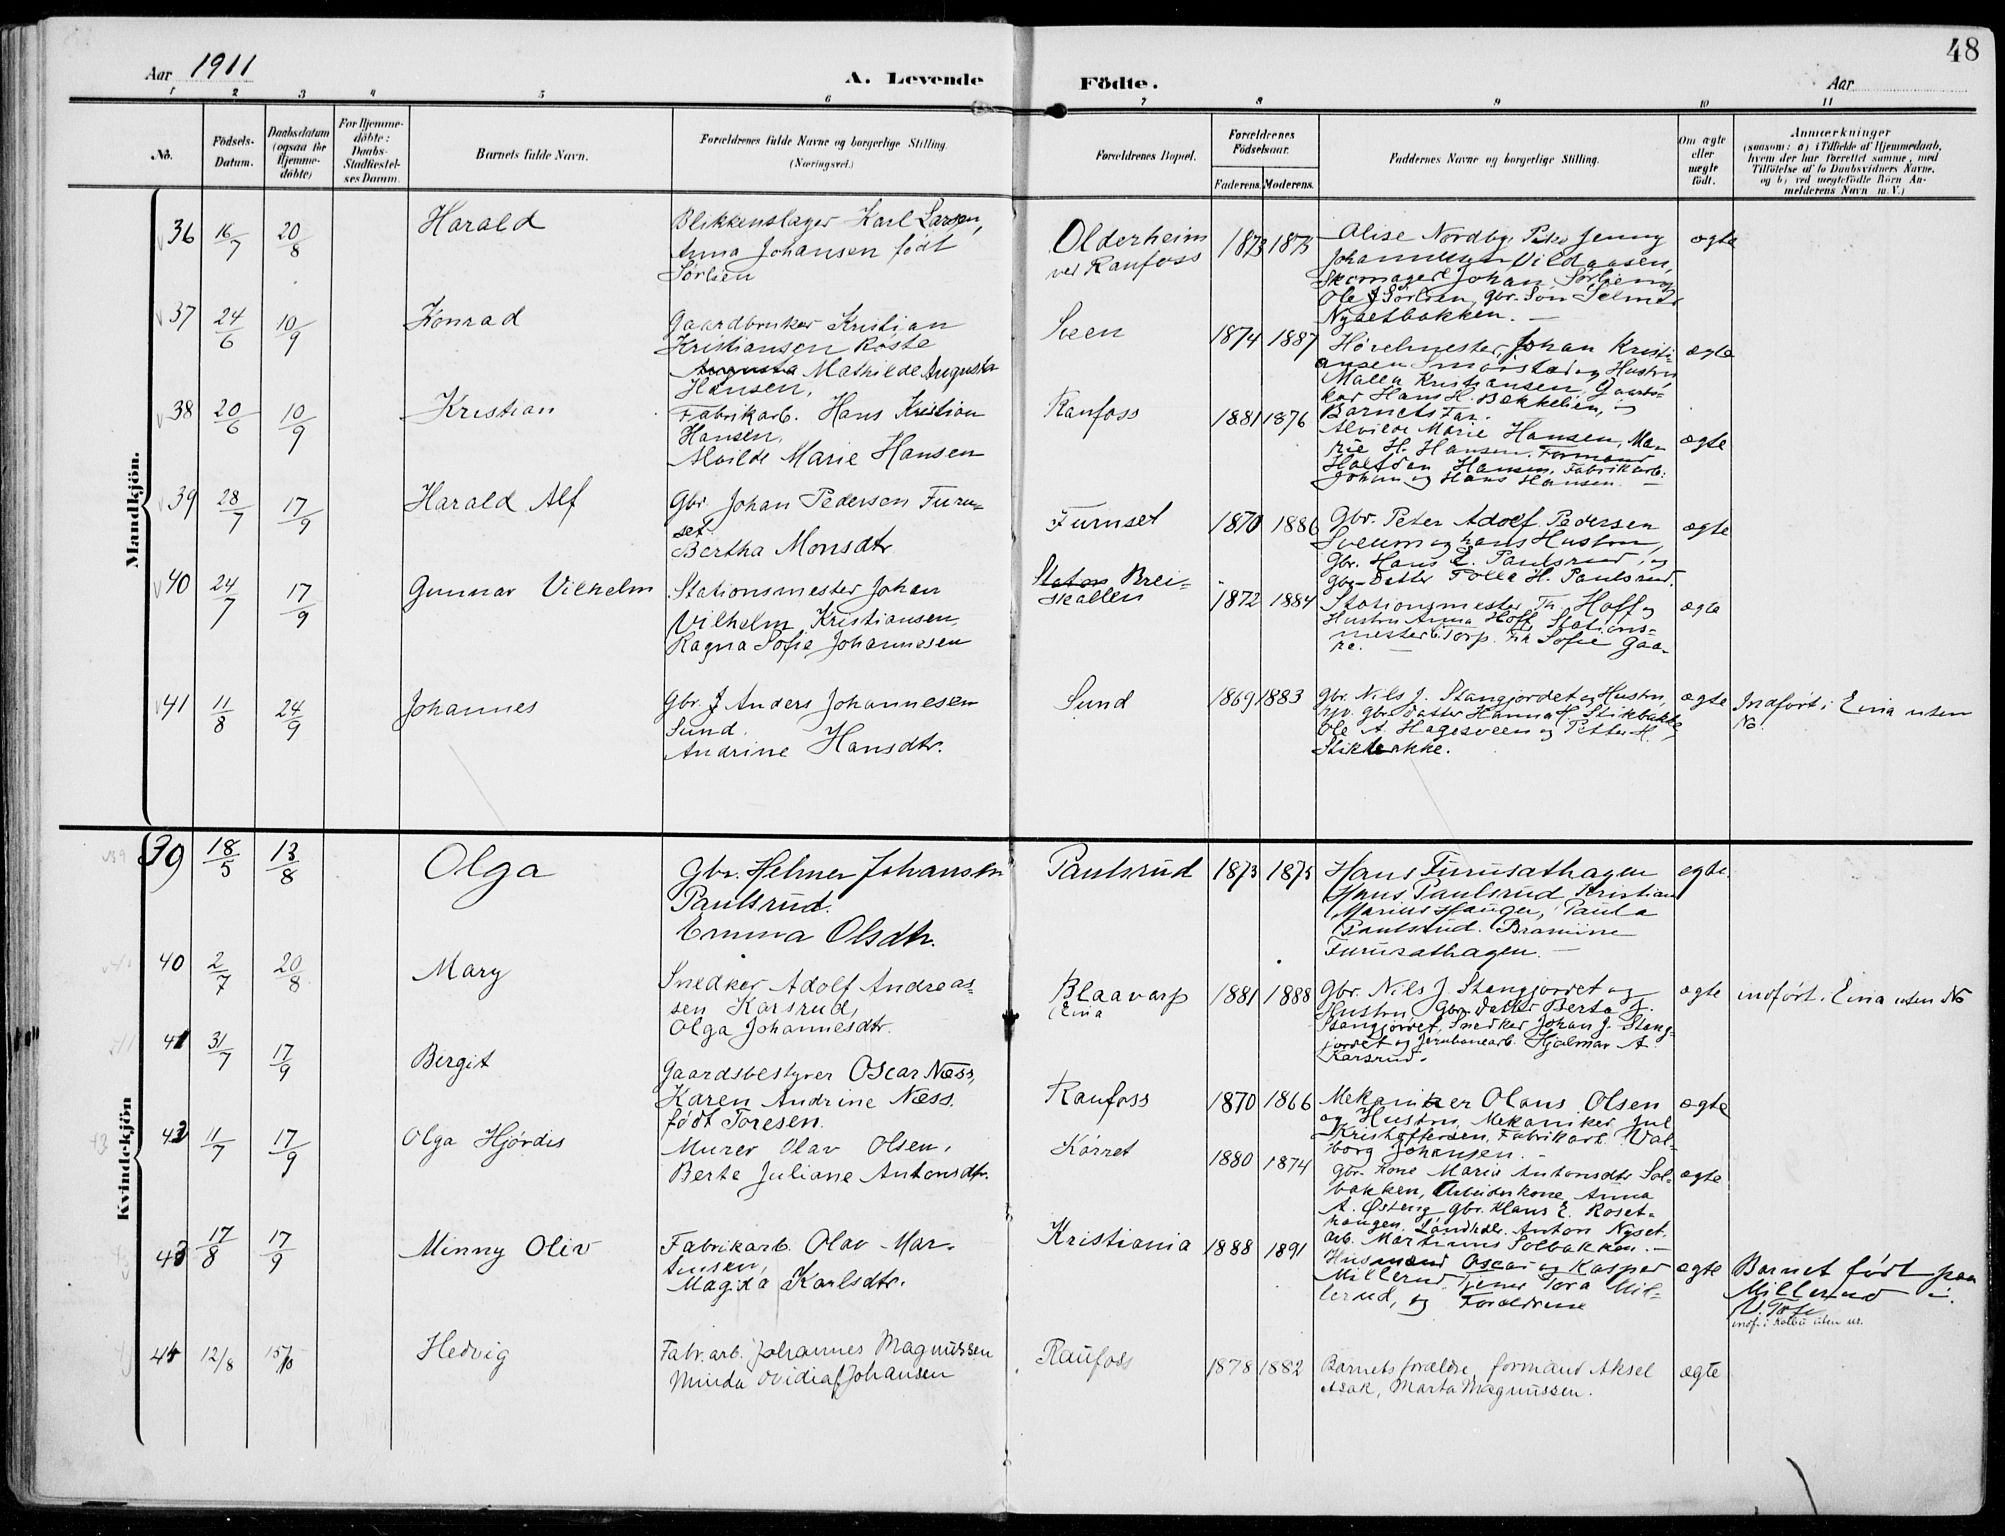 48
Aar 1911
A. Levende Födte.
Aar
1 2 3 4 5 6 7 8 9 10 11
No.
Födsels-
Datum.
Daabsdatum
(ogsaa for
Hjemme-
döbte)
For Hjemme-
döbte:
Daabs-
Stadfæstel-
ses Datum.
Barnets fulde Navn.
Forældrenes fulde Navne og borgerlige Stilling.
(Næringsvei.)
Forældrenes Bopæl.
Forældrenes
Födselsaar.
Faderens. Moderens.
Faddernes Navne og borgerlige Stilling.
Om ægte
eller
uægte
födt.
Anmærkninger
(saasom: a) i Tilfælde af Hjemmedaab,
hvem der har forrettet samme, med
Tilföielse af to Daabsvidners Navne,
og b) ved uægtefödte Börn An-
melderens Navn m. V.)
Mandkjön.
36 16/7 20/8 Harald
Blikkenslager Karl Larsen,
Anna Johansen født
Sørlien
Olderheim
ved Raufoss
1873 1875
Alise Nordby, Jenny
Vildaasen,
Skomager Johan Sørlien og
Ole J Sørlien, gbr. Søn Selmer
Nysetbakken.
ægte
37 24/6 10/9 Konrad
Gaardbruker Kristian
Kristiansen Røste
Augusta Mathilde Augusta
Hansen,
Sveen
1874 1887
Høvelmester, Johan Kristi-
ansen Smørstad og Hustru
Malla Kristiansen, Gaardbr-
kar Hans H. Bakkelien, og
Barnets Far.
ægte
38 20/6 10/9 Kristian
Fabrikarb. Hans Kristian
Hansen,
Alvilde Marie Hansen
Raufoss
1881 1876
Alvilde Marie Hansen, Ma-
rie H. Hansen, Formand
Halfdan Hansen, Fabrikarb.
Johan og Hans Hansen.
ægte
39 28/7 17/9 Harald Alf
Gbr. Johan Pedersen Furu-
set
Bertha Monsdtr.
Furuset
1870 1886
Gbr. Peter Adolf Pedersen
Sveum og hans Hustru,
Gbr. Hans E. Paulsrud, og
gbr-Datter Polla H. Paulsrud.
ægte
40 24/7 17/9 Gunnar Vilhelm
Stationsmester Johan
Vilhelm Kristiansen,
Ragna Sofie Johannesen
Station Brei-
skallen
1872 1884
Stationsmester Th. Hoff og
Hustru Anna Hoff, Stations-
mester Torp. Frk Sofie Gaa-
re.
ægte
41 11/8 24/9 Johannes
Gbr. J Anders Johannesen
Sund.
Andrine Hansdtr.
Sund
1869 1883
Gbr. Nils J. Stangjordet og Hustru,
gbr. Datter Hanna H. Stikbakke
Ole A. Hagesveen og Petter H.
Stikbakke.
ægte
Indført i Eina uten
No.
Kvindekjön
39 18/5 13/8 Olga
Gbr. Helmer Johansen
Paulsrud.
Emma Olsdtr.
Paulsrud
1873 1875
Hans Furusathagen
Hans Paulsrud Kristian
Marius Hauger, Paula
Paulsrud. Bramine
Furusathagen.
egte.
40 2/7 20/8 Mary
Snedker Adolf Andreas-
sen Karsrud,
Olga Johannesdtr.
Blaavarp
Eina
1881 1888
Gbr. Nils J. Stangjordet og
Hustru Gbr. Datter Berta J.
Stangjordet, Snedker Johan J. Stang-
jordet og Jernbanearb. Hjalmar A.
Karsrud.
ægte
indført i Eina uten No
41 31/7 17/9 Bergit
Gaardsbestyrer Oscar Næss,
Karen Andrine Næss.
født Toresen.
Raufoss
1870 1866
Mekaniker Olaus Olsen
og Hustru, Mekaniker Jul
Kristoffersen, Fabrikarb. Val-
borg Johansen.
ægte
42 11/7 17/9 Olga Hjørdis
Murer Olav Olsen,
Berte Juliane Antonsdtr.
Kørret
1880 1874
Gbr. Kone Marie Antonsdtr Sol-
bakken, Arbeiderkone Anna
A. Østeng gbr. Hans E. Roset-
haugen, Anton Nyset.
arb. Martinus Solbakken.
ægte
43 17/8 17/9 Minny Oliv
Fabrikarb. Olav Mar-
tinsen,
Magda Karlsdtr.
Kristiania
1888 1891
Husmænd Oscar og Kaspar
Millerud, Tjener Tora Mil-
lerud, og Foreldrene
ægte
Barnet født paa
Millerud i
V. Toten
indf. i Kolbu uten nr.
44 12/8 15/10 Hedvig
Fabr.arb. Johannes Magnussen
Minda Ovidia f. Johansen
Raufoss
1878 1882
Barnets forældre, formand Aksel
Asak, Marta Magnussen.
ægte